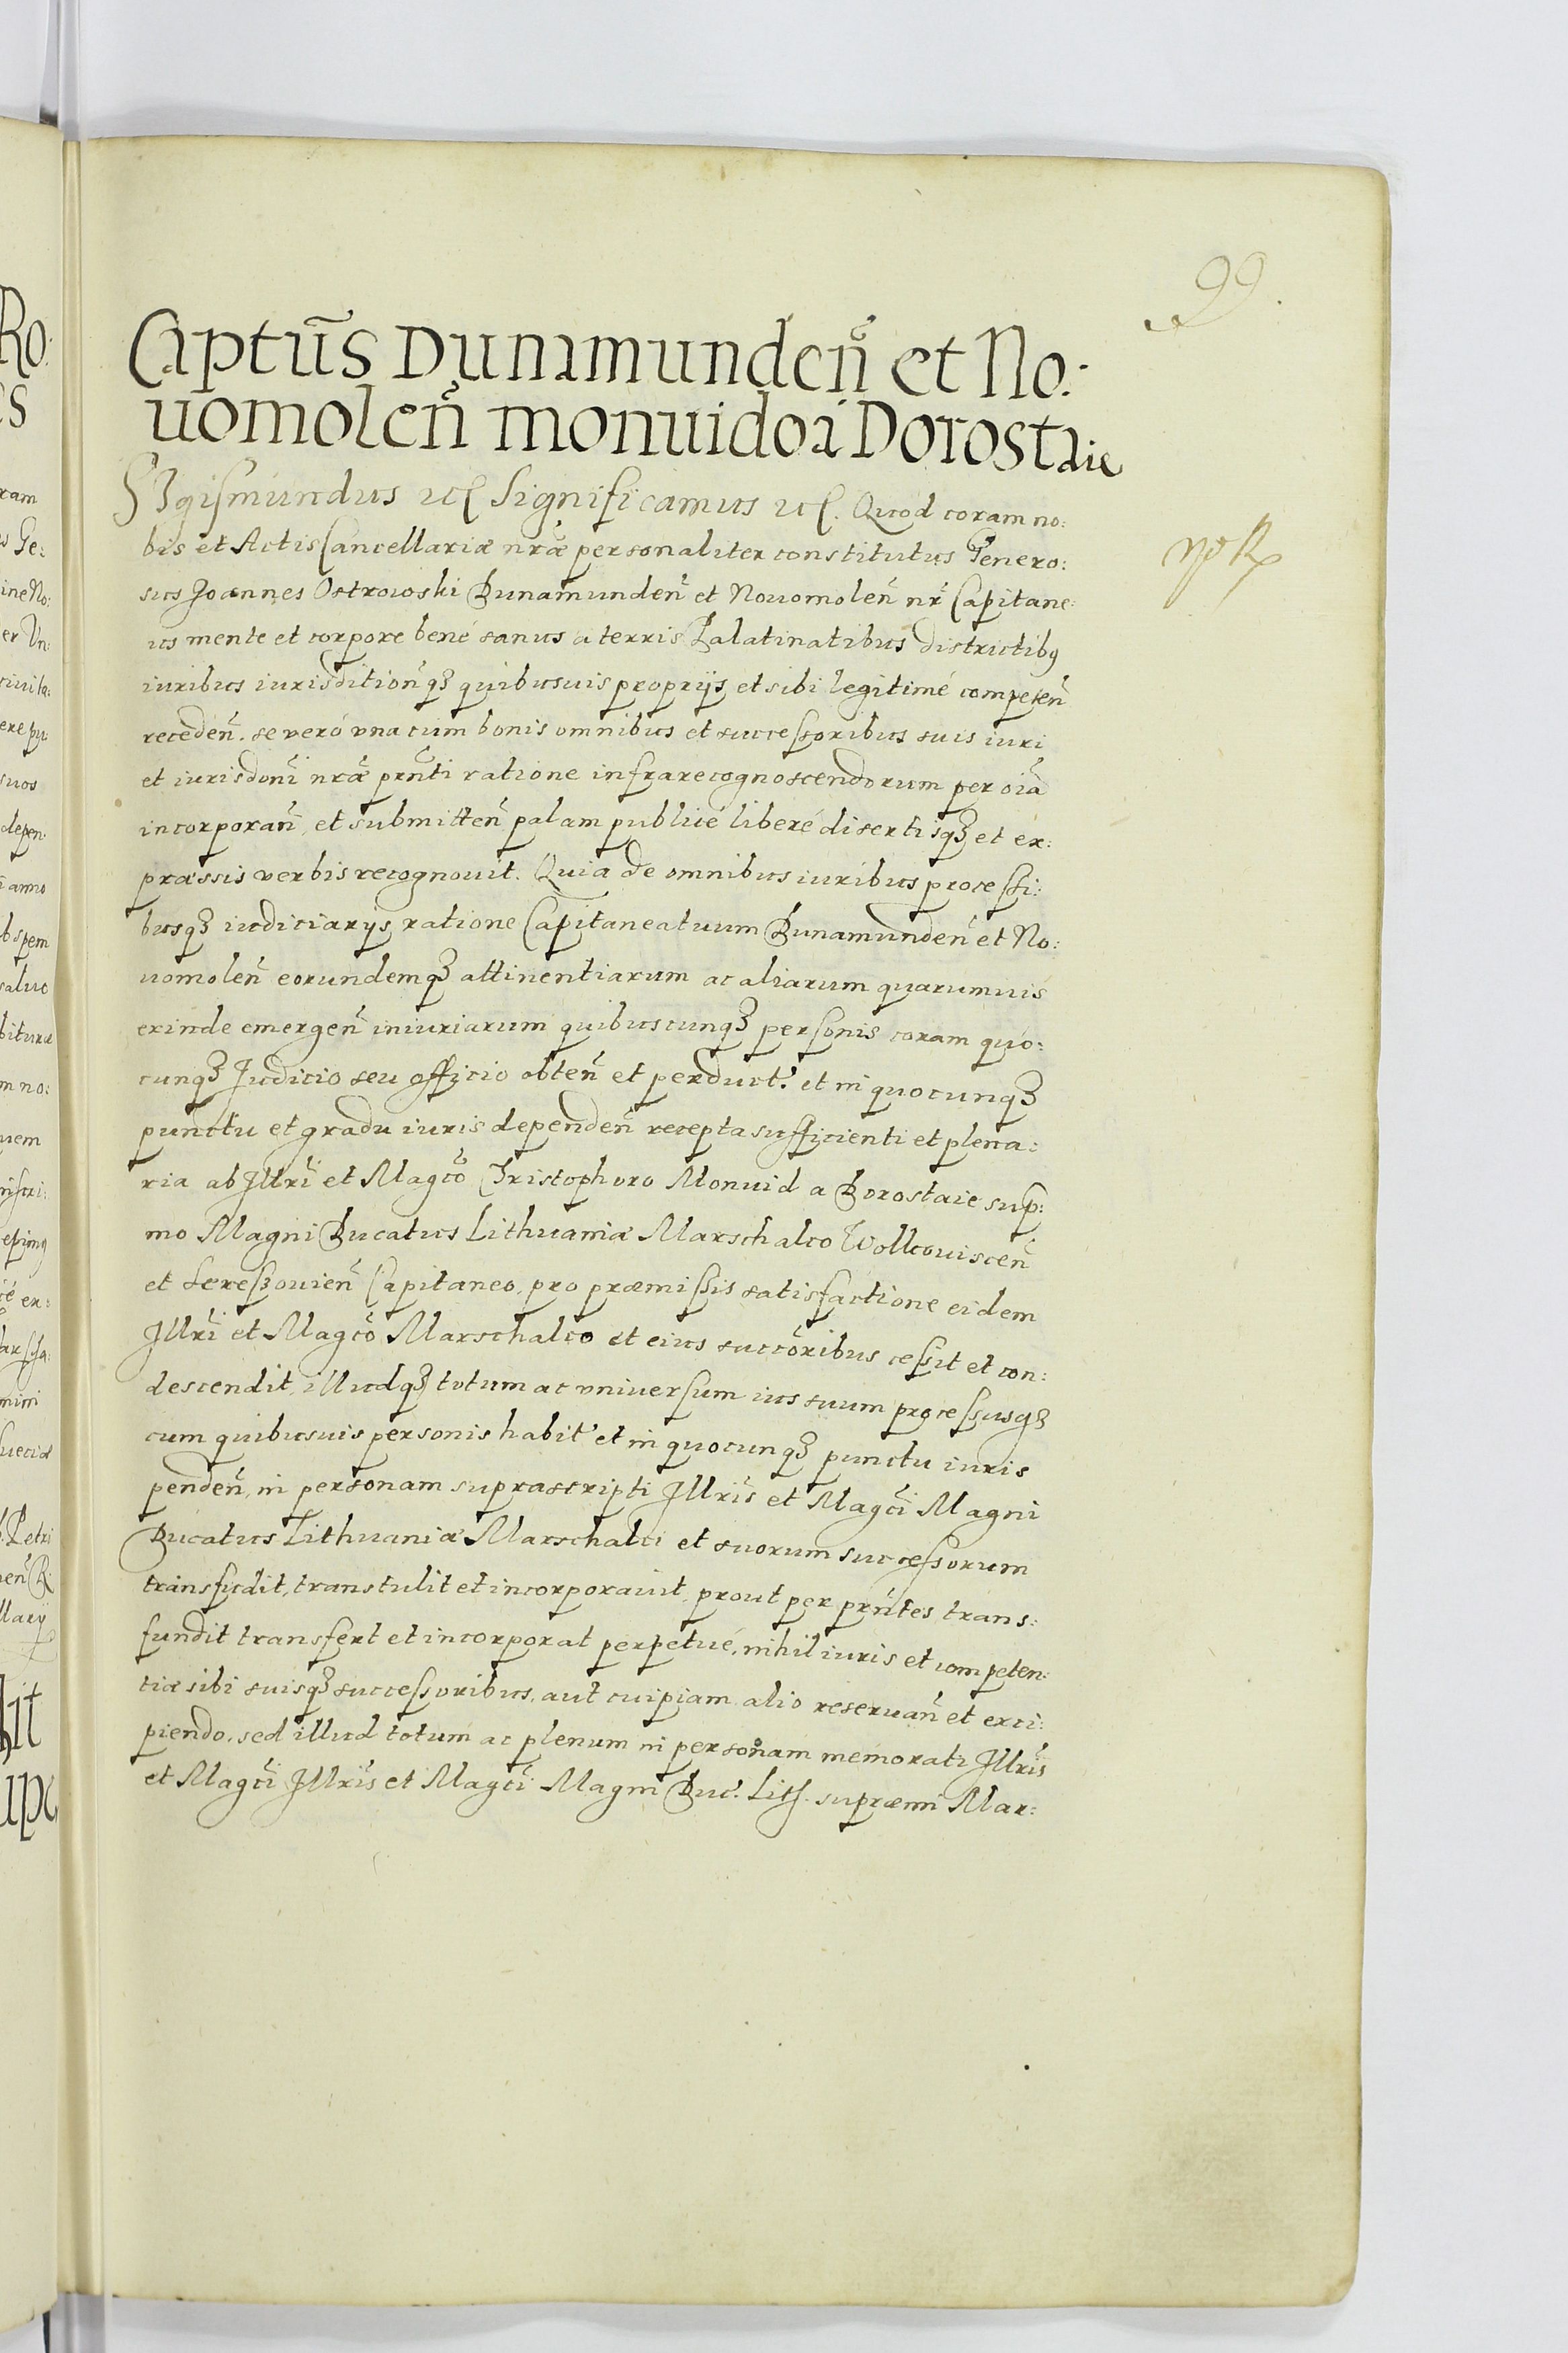 99.
Captus̄ Dunamunden̄ et No:
uomolen̄ monuido a Dorostaie
SIgismundus etc Significamus etc. Quod coram no:
bis et Actis Cancellariæ nrǣ personaliter constitutus Genero:
sus Joannes Ostrowski Dunamunden̄ et Nouomolen̄ nr̄ Capitane:
us mente et corpore bené sanus a terris Palatinatibus districtibꝰ
iuribus iurisdition̄qꝫ quibusuis proprijs et sibi legitimé competen̄
receden̄. se veró vna cum bonis omnibus et successoribus suis iuri
et iurisdoni̅ nrǣ prn̄ti ratione infrarecognoscendorum per oīa
incorporan̄, et submitten̄ palam publicé liberé disertisqꝫ et ex:
præssis verbis recognouit. Quia de omnibus iuribus processi:
busqꝫ iudiciarijs ratione Capitaneatuum Dunamunden̄ et No:
uomolen̄ eorundemqꝫ attinentiarum ac aliarum quarumuis
exinde emergen̄ iniuriarum quibuscunqꝫ personis coram quo:
cunqꝫ Judicio seu officio obten̄ et perduct. et in quocunqꝫ
punctu et gradu iuris dependen̄ recepta sufficienti et plena:
ria ab Jllri̅ et Magco̅ Christophoro Monuid a Dorostaie sup:
mo Magni Ducatus Lithuaniæ Marschalco Wolkouiscen̄
et Sereszouien̄ Capitaneo, pro præmissis satisfactione eidem
Jllri̅ et Magco̅ Marschalco et eius succo̅ribus cessit et con:
descendit, illudqꝫ totum ac vniuersum ius suum processusqꝫ
cum quibusuis personis habit' et in quocunqꝫ punctu iuris
penden̄, in personam suprascripti Jllri̅s et Magci̅ Magni
Ducatus Lithuaniæ Marschalci et suorum successorum
transfudit, transtulit et incorporauit, prout per prn̄tes trans:
fundit transfert et incorporat perpetué, nihil iuris et competen:
tiæ sibi suisqꝫ successoribus, aut cuipiam alio reseruan̄ et exci:
piendo, sed illud totum ac plenum in personam memorati Jllri̅s
et Magci̅ Jllri̅s et Magci̅ Magni Duc. Lith. supræmi Mar: